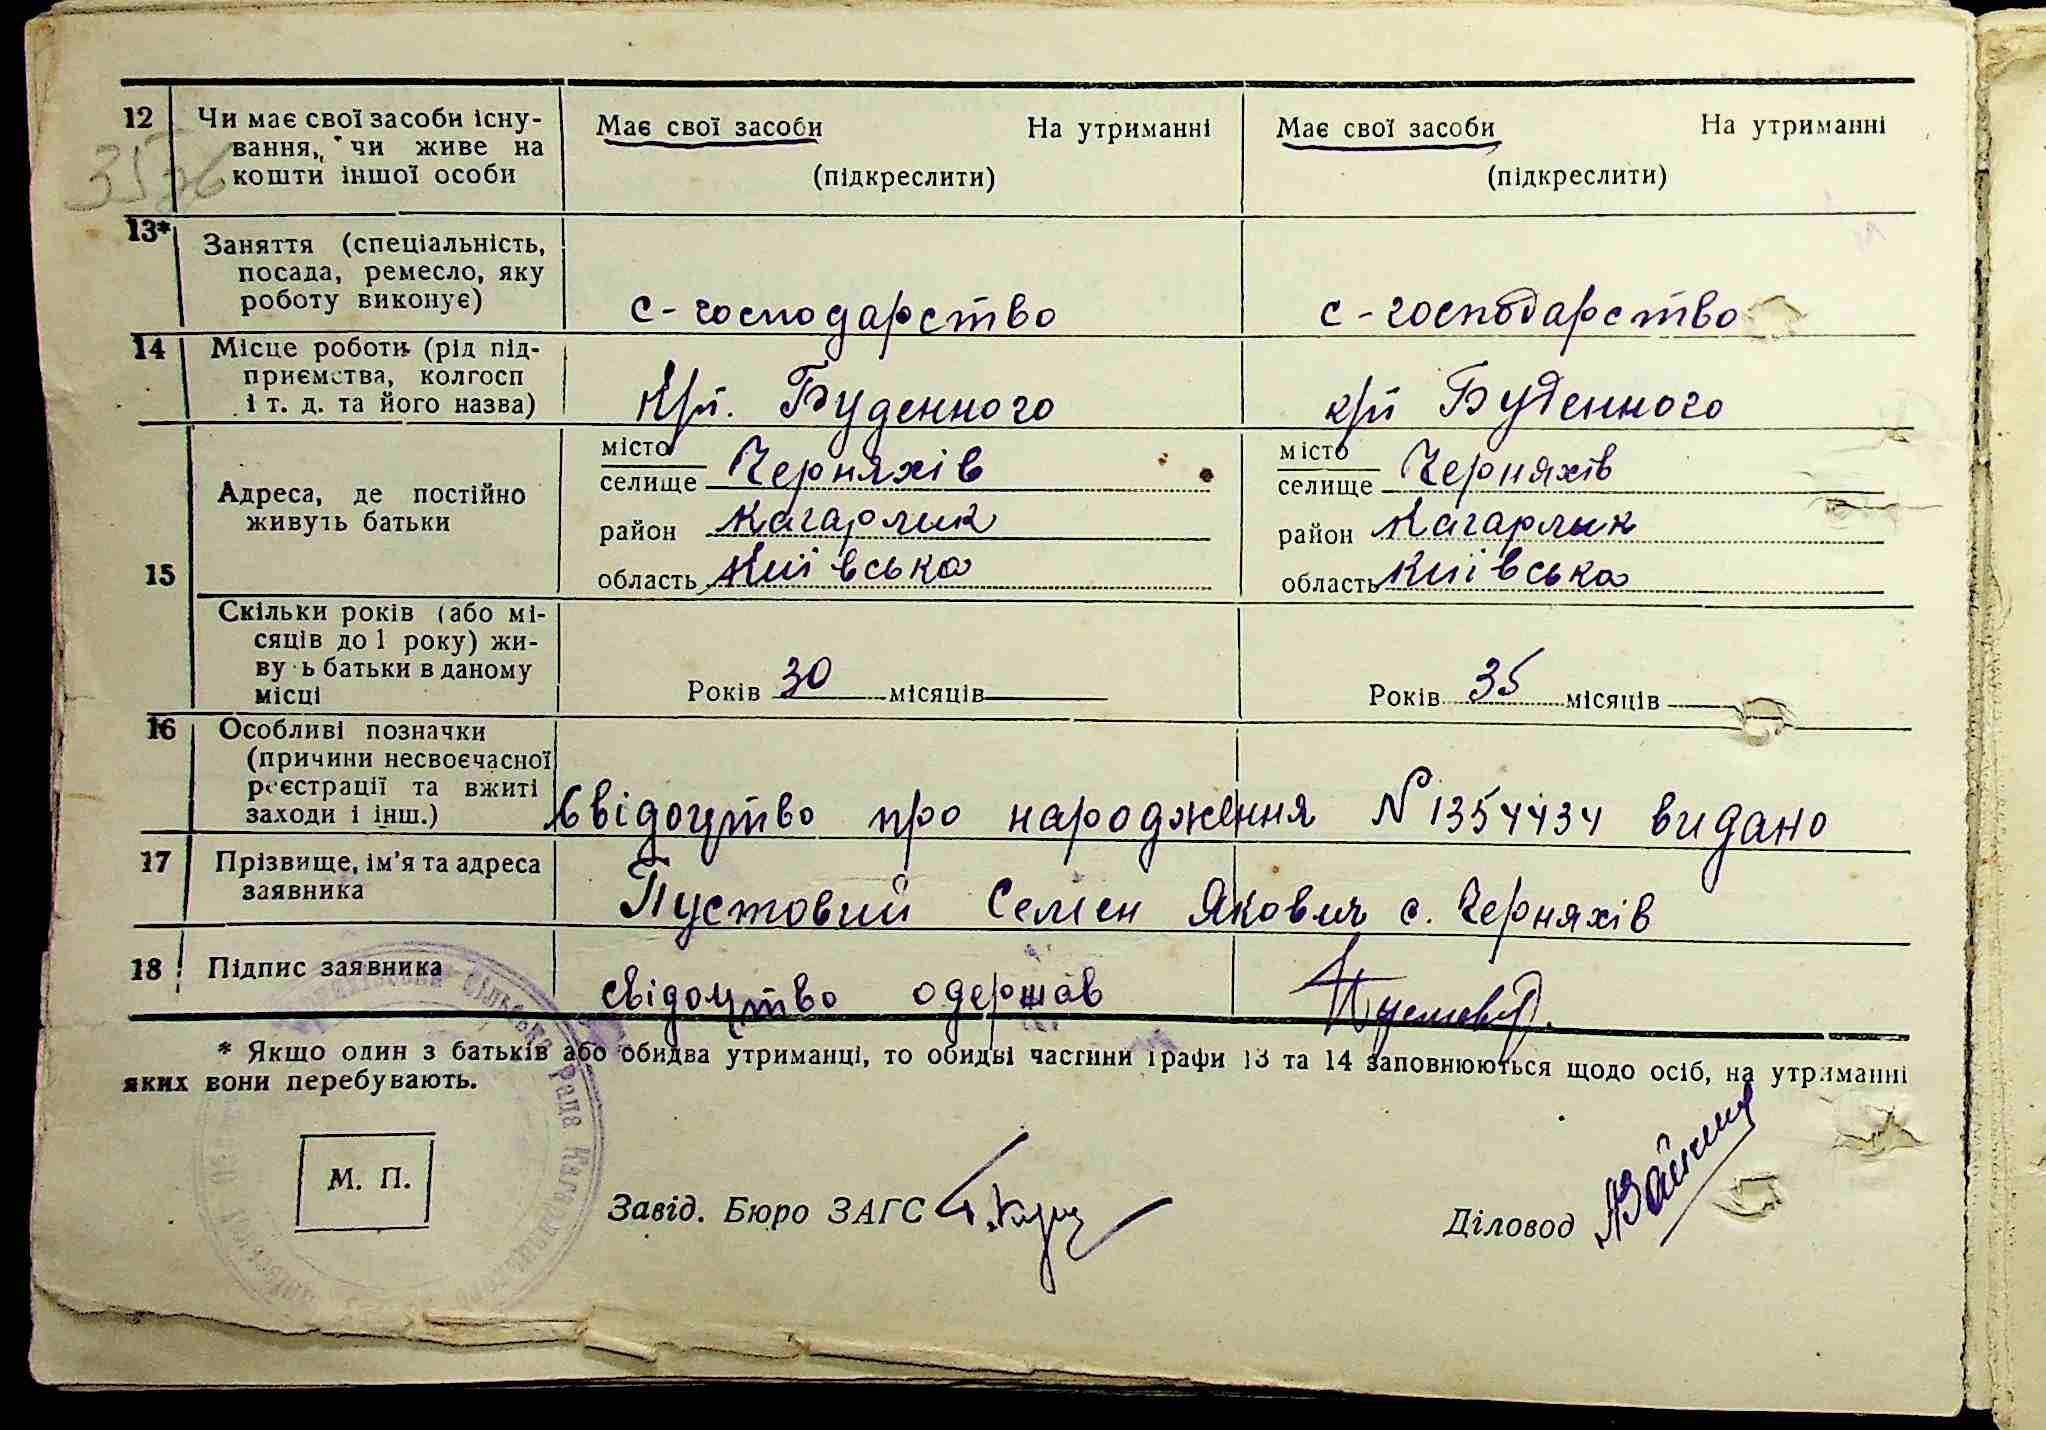 12 Чи має свої засоби існу-
вання, чи живе на
кошти іншої особи
Має свої засоби На утриманні
(підкреслити)
Має свої засоби На утриманні
(підкреслити)
13* Заняття (спеціальність,
посада, ремесло, яку
роботу виконує)
с-господарство
с-господарство
14 Місце роботи (рід під-
приємства, колгосп
і т. д. та його назва)
Буденного
Буденного
15 Адреса, де постійно
живуть батьки
місто
селище Черняхів
район Кагарлик
область Київська
місто
селище Черняхів
район Кагарлик
область Київська
Скільки років (або мі-
сяців до 1 року) жи-
вуть батьки в даному
місці
Років 30 місяців
Років 35 місяців
16 Особливі позначки
(причини несвоєчасної
реєстрації та вжиті
заходи і інш.)
Свідоцтво про народження N 1354434 видано
17 Прізвище, ім'я та адреса
заявника
Пустовий Семен Якович с. Черняхів
18 Підпис заявника
свідоцтво одержав
* Якщо один з батьків або обидва утриманці, то обидві частини графи 13 та 14 заповнюються щодо осіб, на утриманні
яких вони перебувають.
М. П.
Завід. Бюро ЗАГС
Діловод